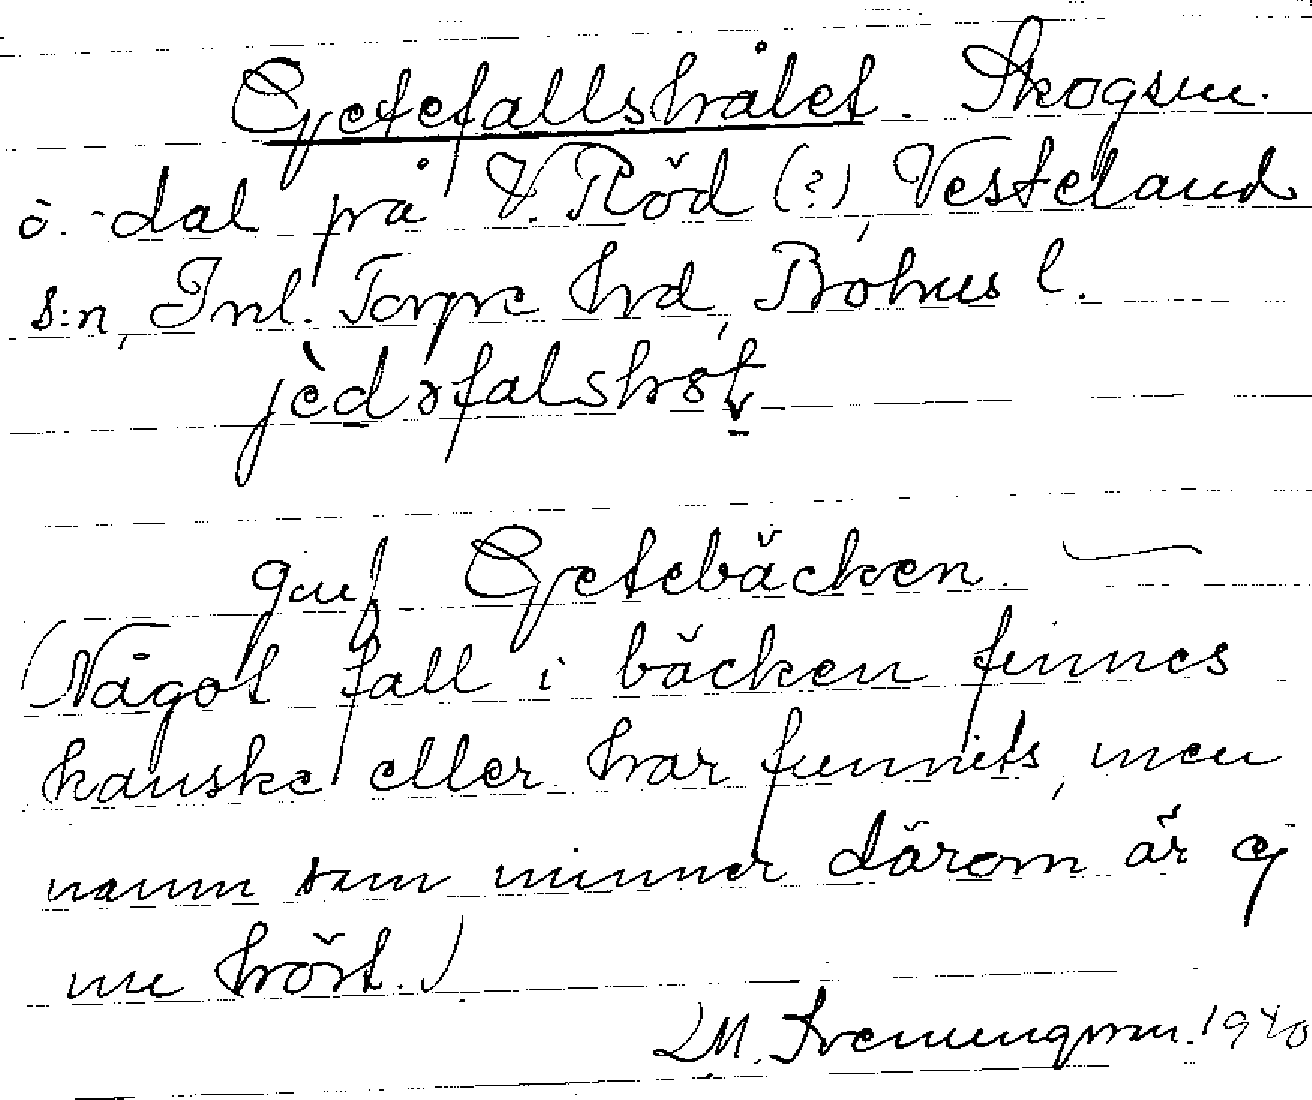 Getefallshålet. Skogsm.
o. dal på V. Röd (?), Vesteland
s:n, Inl. Torpe hrd, Bohus l.
jèdəfalshɷt
gm Getebäcken.
(Något fall i bäcken finnes
kanske eller har funnits, men
namn som minner därom är ej
nu hört.)
1940